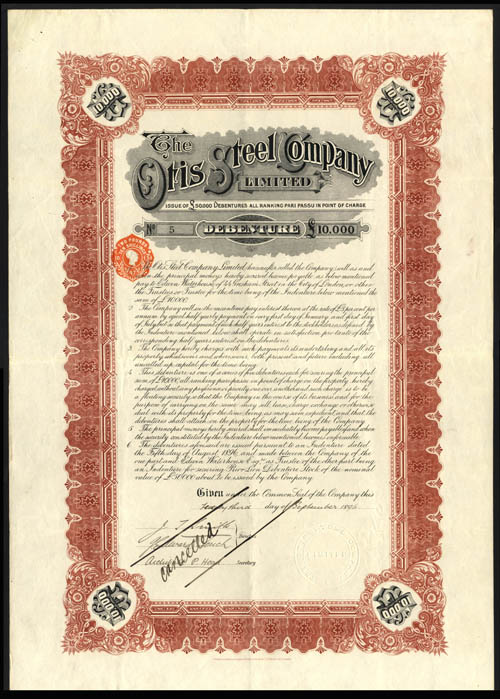 10,000
10,000
The
Otis Steel Company
LIMITED
ISSUE OF £50,000 DEBENTURES ALL RANKING PARI PASSU IN POINT OF CHARGE
No 5 DEBENTURE £10,000
The Otis Steel Company Limited (hereinafter called the Company) will as and
when the principal moneys hereby secured become payable as below mentioned
pay to Edwin Waterhouse of 44 Gresham Street in the City of London, or other
the Trustees or Trustee for the time being of the Indenture below mentioned the
sum of £10000
2 The Company will in the meantime pay interest thereon at the rate of per cent per
annum by equal half yearly payments on every first day of January and first day
of July but in that payment of each half years interest to the stockholders
by
the Indenture mentioned below shall operate in satisfaction pro tanto of the
corresponding half years interest on the debentures
3 The Company hereby charges with such payments its undertaking and all its
property whatsoever and wheresoever both present and future including all
uncalled up capital for the time being
4 This debenture is one of a series of five debentures each for securing the principal
sum of £10,000, all ranking pari passu in point of charge on the property hereby
charged without any preference or priority one over another and such charge is to be
a floating security so that the Company in the course of its business and for the
purpose of carrying on the same may sell, lease, charge exchange or otherwise
deal with its property for the time being as may seem expedient and that the
debentures shall attach on the property for the time being of the Company
5 The principal moneys hereby secured shall immediately become payable if and when
the security constituted by the Indenture below mentioned becomes enforceable
6 The debentures aforesaid are issued pursuant to an Indenture dated
the Fifth day of August 1896, and made between the Company of the
one part and Edwin Waterhouse Esqre as Trustee of the other part being
an Indenture for securing Prior Lien Debenture Stock of the nominal
value of £50000 about to be issued by the Company
Given under the Common Seal of the Company this
Twenty third day of September 1896
Directors
cancelled
P. Head Secretary
LIMITED
10,000
10,000